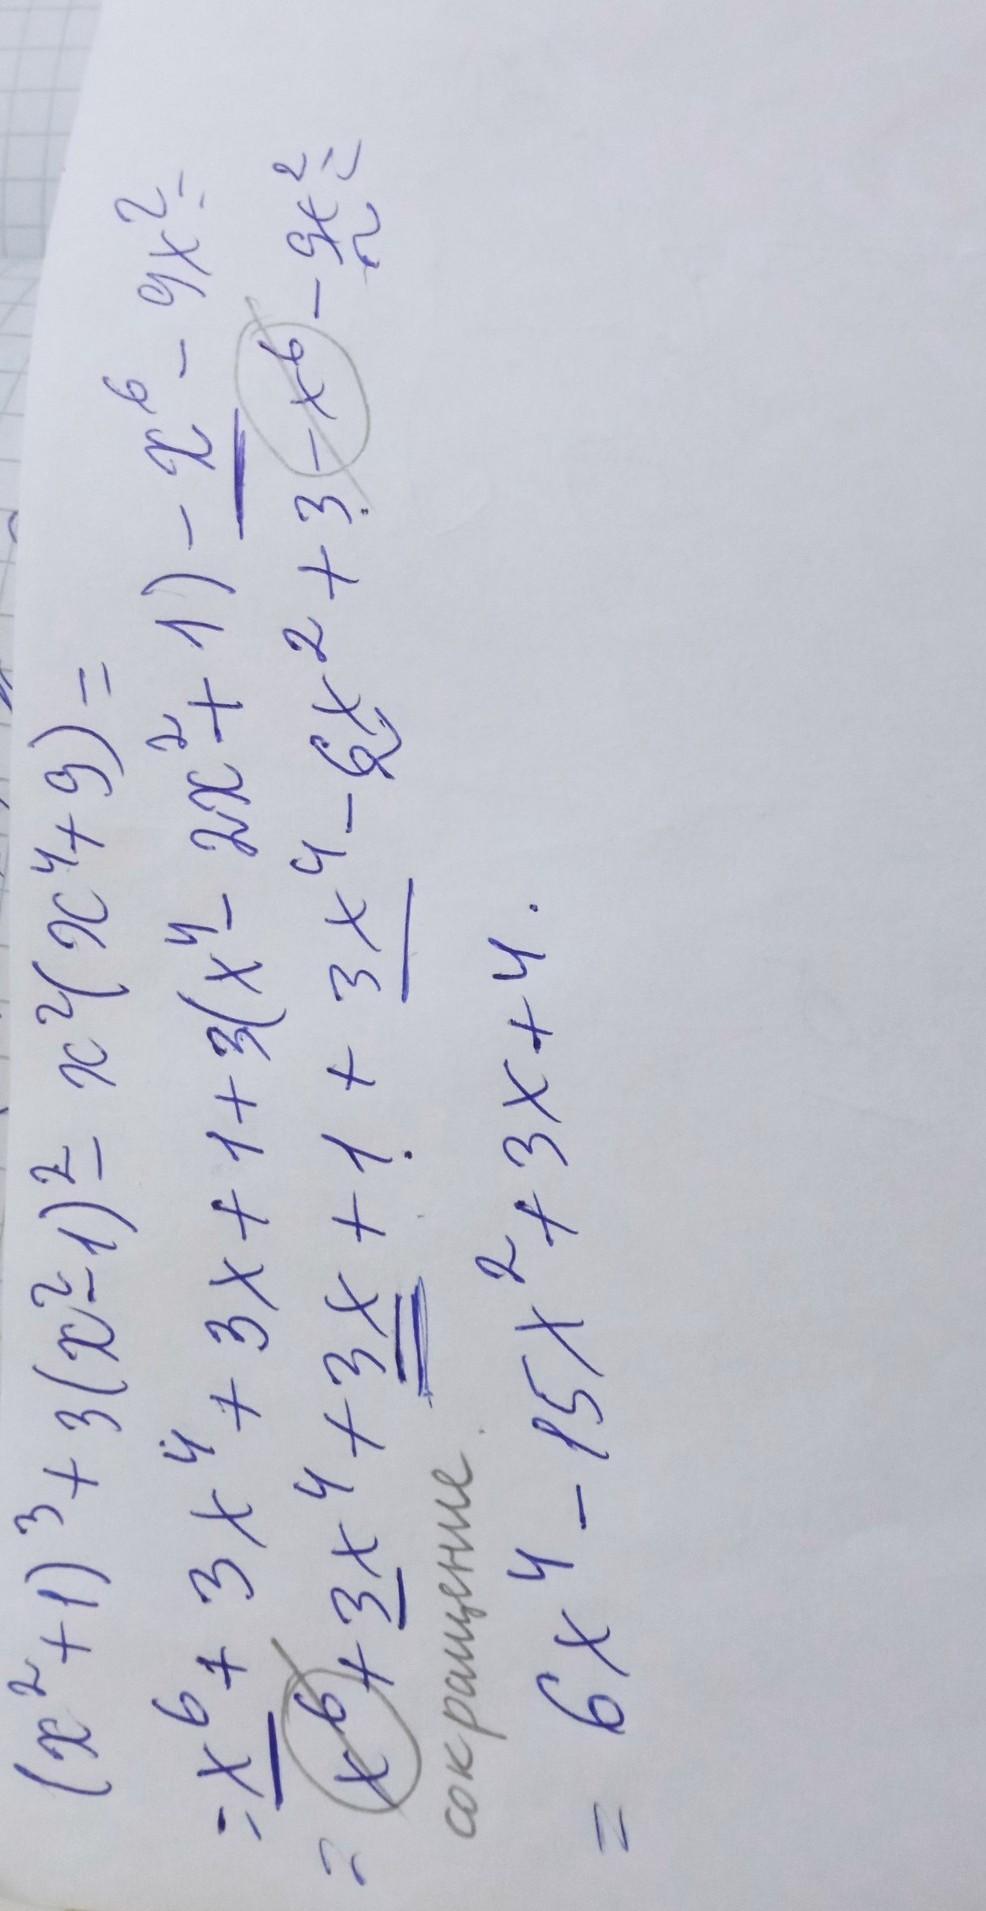 (x²+1)³+3(x²-1)²-x²(x⁴+9)=
=x⁶+3x⁴+3x+1+3(x⁴-2x²+1)-x⁶-9x²=
=x⁶+3x⁴+3x+1+3x⁴-6x²+3-x⁶-9x²=
сокращение
=6x⁴-15x²+3x+4.